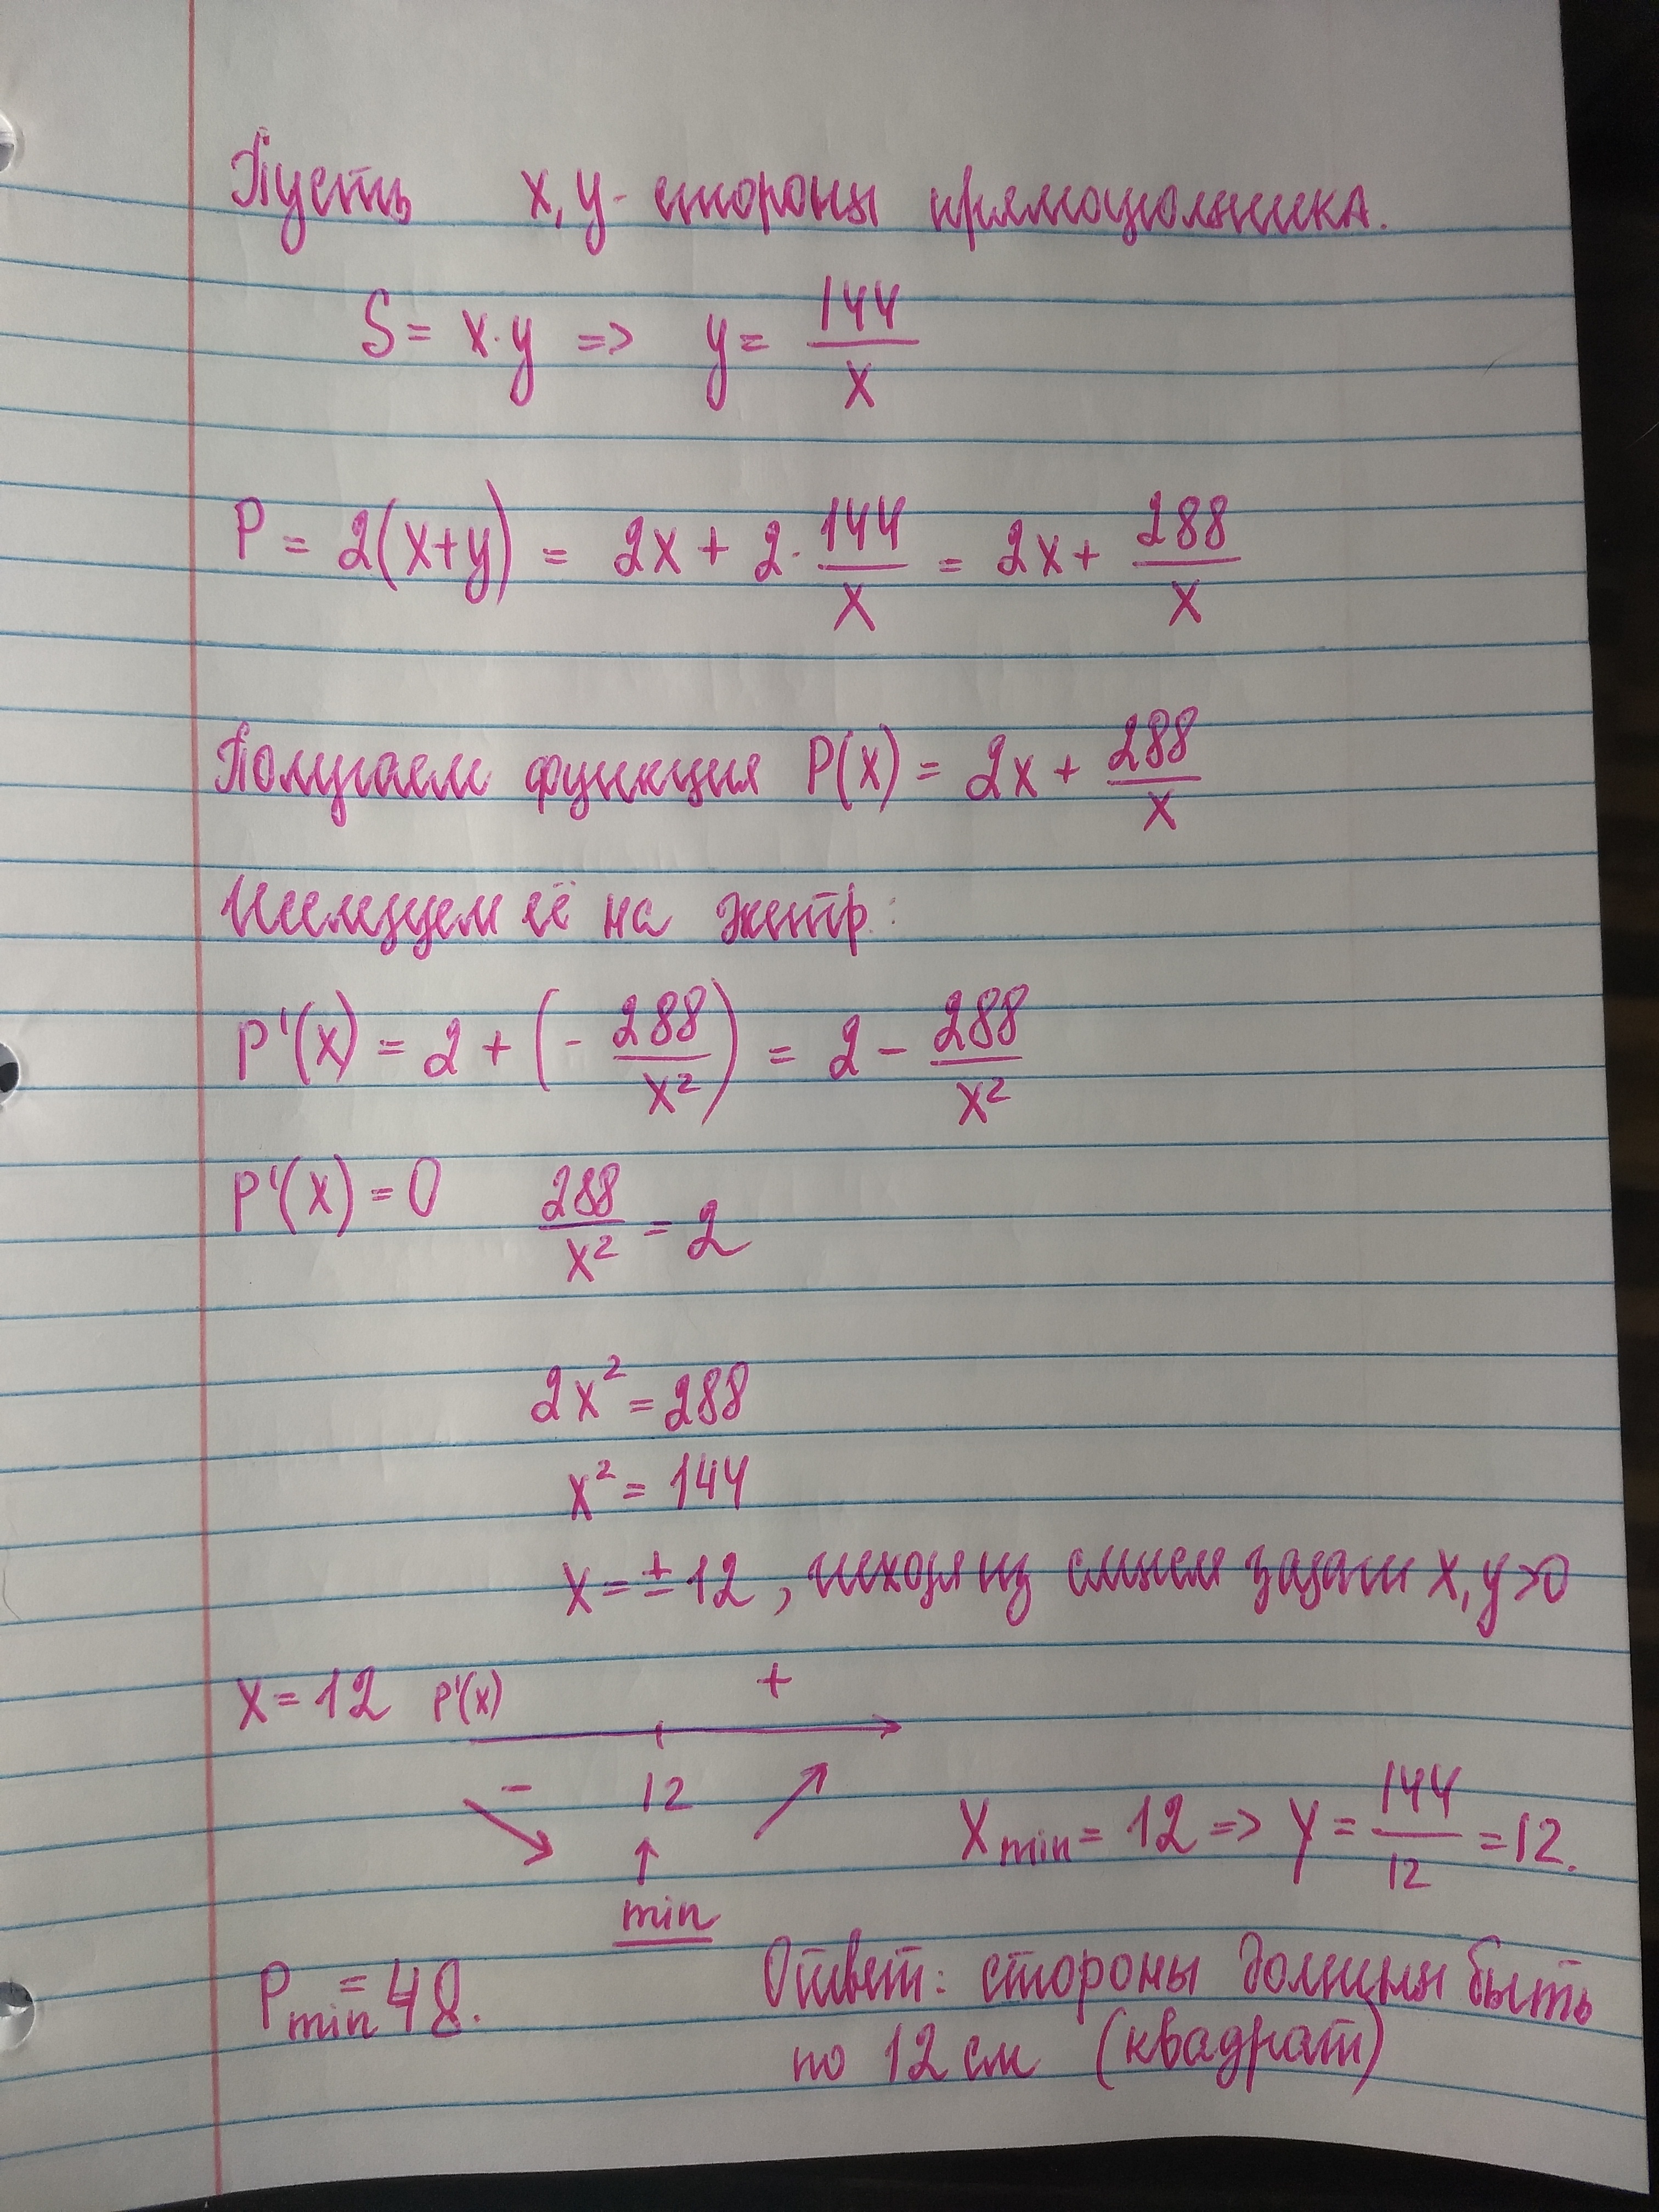 Пусть x, y - стороны прямоугольника.
S = x·y => y = 144/x
P = 2(x+y) = 2x + 2·144/x = 2x + 288/x
Получаем функция P(x) = 2x + 288/x
Исследуем её на экстр.:
P'(x) = 2 + (- 288/x²) = 2 - 288/x²
P'(x) = 0 288/x² = 2
2x² = 288
x² = 144
x = ±12, исходя из смысла задачи x, y >0
x = 12 P'(x) +
- 12
X min = 12 => y = 144/12 = 12.
min
P min = 48.
Ответ: стороны должны быть
по 12 см (квадрат)